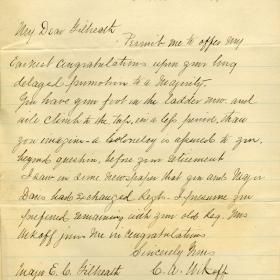 My Dear Gilbreath
Permit me to offer my
earnest congratulations upon your long
delayed promotion to a Majority.
You have your foot on the ladder now and
will climb to the top, in a less period, than
you imagine - a Colonelcy is assured to you,
beyond question, before your retirement
I saw in some newspaper that you and Major
Davis had exchanged Regts. I presume you
preferred remaining with your old Reg. Mrs
Wikoff joins me in congratulations
Sincerely Yours
Major E. C. Gilbreath C. A. Wikoff